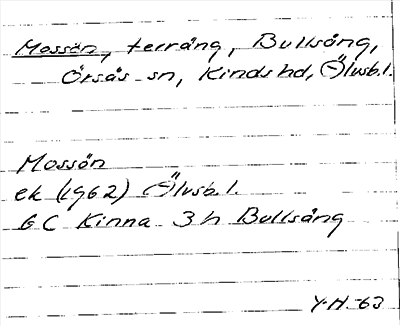 Mossön, terräng, Bullsäng,
Örsås sn, Kinds hd, Älvsb.l.
Mossön
ek (1962) Älvsb.l.
6 C Kinna 3 h Bullsäng
Y.H.-63